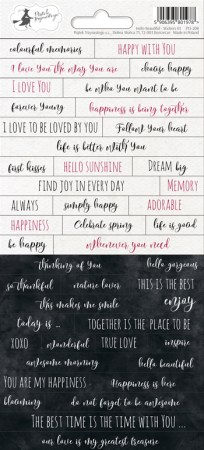 Hello Beautiful - Stickers 01
5 906395 801978 >
colourful memories HAPPY WITH YOU
I love you the way you are choose happy
I LOVE YOU be who you want to be
forever young happiness is being together
I LOVE TO BE LOVED BY YOU Follow your heart
life is better with you
first kisses HELLO SUNSHINE DREAM big
FIND JOY IN EVERY DAY MEMORY
ALWAYS simply happy ADORABLE
HAPPINESS Celebrate spring life is good
be happy whenever you need
thinking of you hello gorgeous
so thankful nature love THIS IS THE BEST
this makes me smile enjoy
today is ... TOGETHER IS THE PLACE TO BE
XOXO wonderful TRUE LOVE inspire
awesome morning hello beautiful
YOU ARE MY HAPPINESS Happiness is here
blooming do not forget to be awesome
THE BEST TIME IS THE TIME WITH YOU ...
our love is my greatest treasure